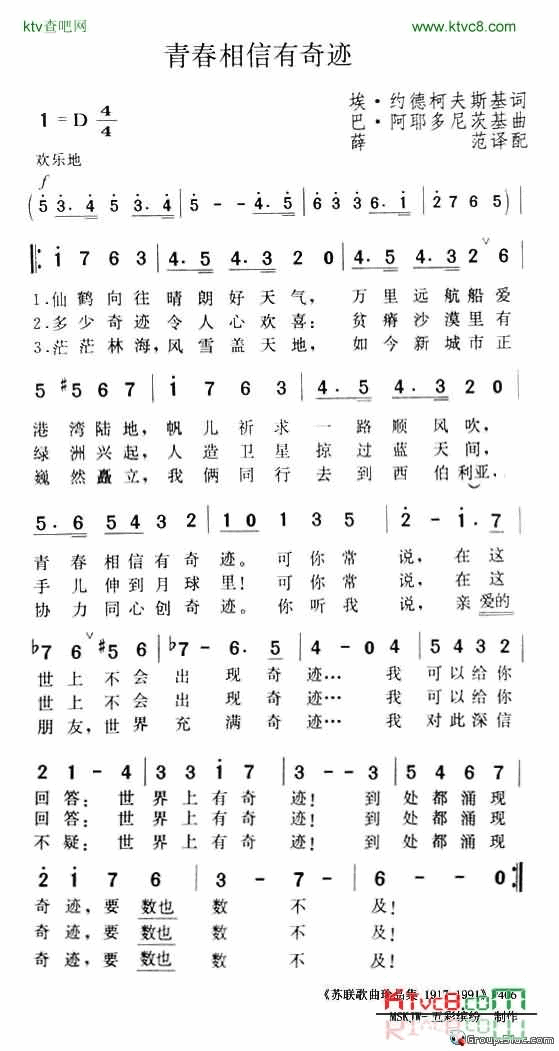 ktv查吧网
www.ktvc8.com
青春相信有奇迹
1 = D 4/4
埃·约德柯夫斯基词
巴·阿耶多尼茨基曲
薛 范译配
欢乐地
f
( 5 3. 4 5 3. 4 5 - - 4. 5 6 3 3 6. 1 2 7 6 5 )
1 7 6 3 4. 5 4. 3 2 0 4. 5 4. 3 2 6
1.仙鹤向往晴朗好天气，万里远航船爱
2.多少奇迹令人心欢喜：贫瘠沙漠里有
3.茫茫林海，风雪盖天地，如今新城市正
5 #5 6 7 1 7 6 3 4. 5 4. 3 2 0
港湾陆地，帆儿祈求一路顺风吹，
绿洲兴起，人造卫星掠过蓝天间，
巍然矗立，我俩同行去到西伯利亚，
5. 6 5 4 3 2 1 0 1 3 5 2 - 1. 7
青春相信有奇迹。可你常说，在这
手儿伸到月球里！可你常说，在这
协力同心创奇迹。你听我说，亲爱的
♭7 6 #5 6 ♭7 - 6. 5 4 - 0 4 5 4 3 2
世上不会出现奇迹…我可以给你
世上不会出现奇迹…我可以给你
朋友，世界充满奇迹…我对此深信
2 1 - 4 3 3 1 7 3 - - 3 5 4 6 7
回答：世界上有奇迹！到处都涌现
回答：世界上有奇迹！到处都涌现
不疑：世界上有奇迹！到处都涌现
2 1 7 6 3 - 7 - 6 - - 0
奇迹，要数也数不及！
奇迹，要数也数不及！
奇迹，要数也数不及！
《苏联歌曲珍品集 1917-1991》P406
Ktvc8.com
MSKJW- 五彩缤纷 制作